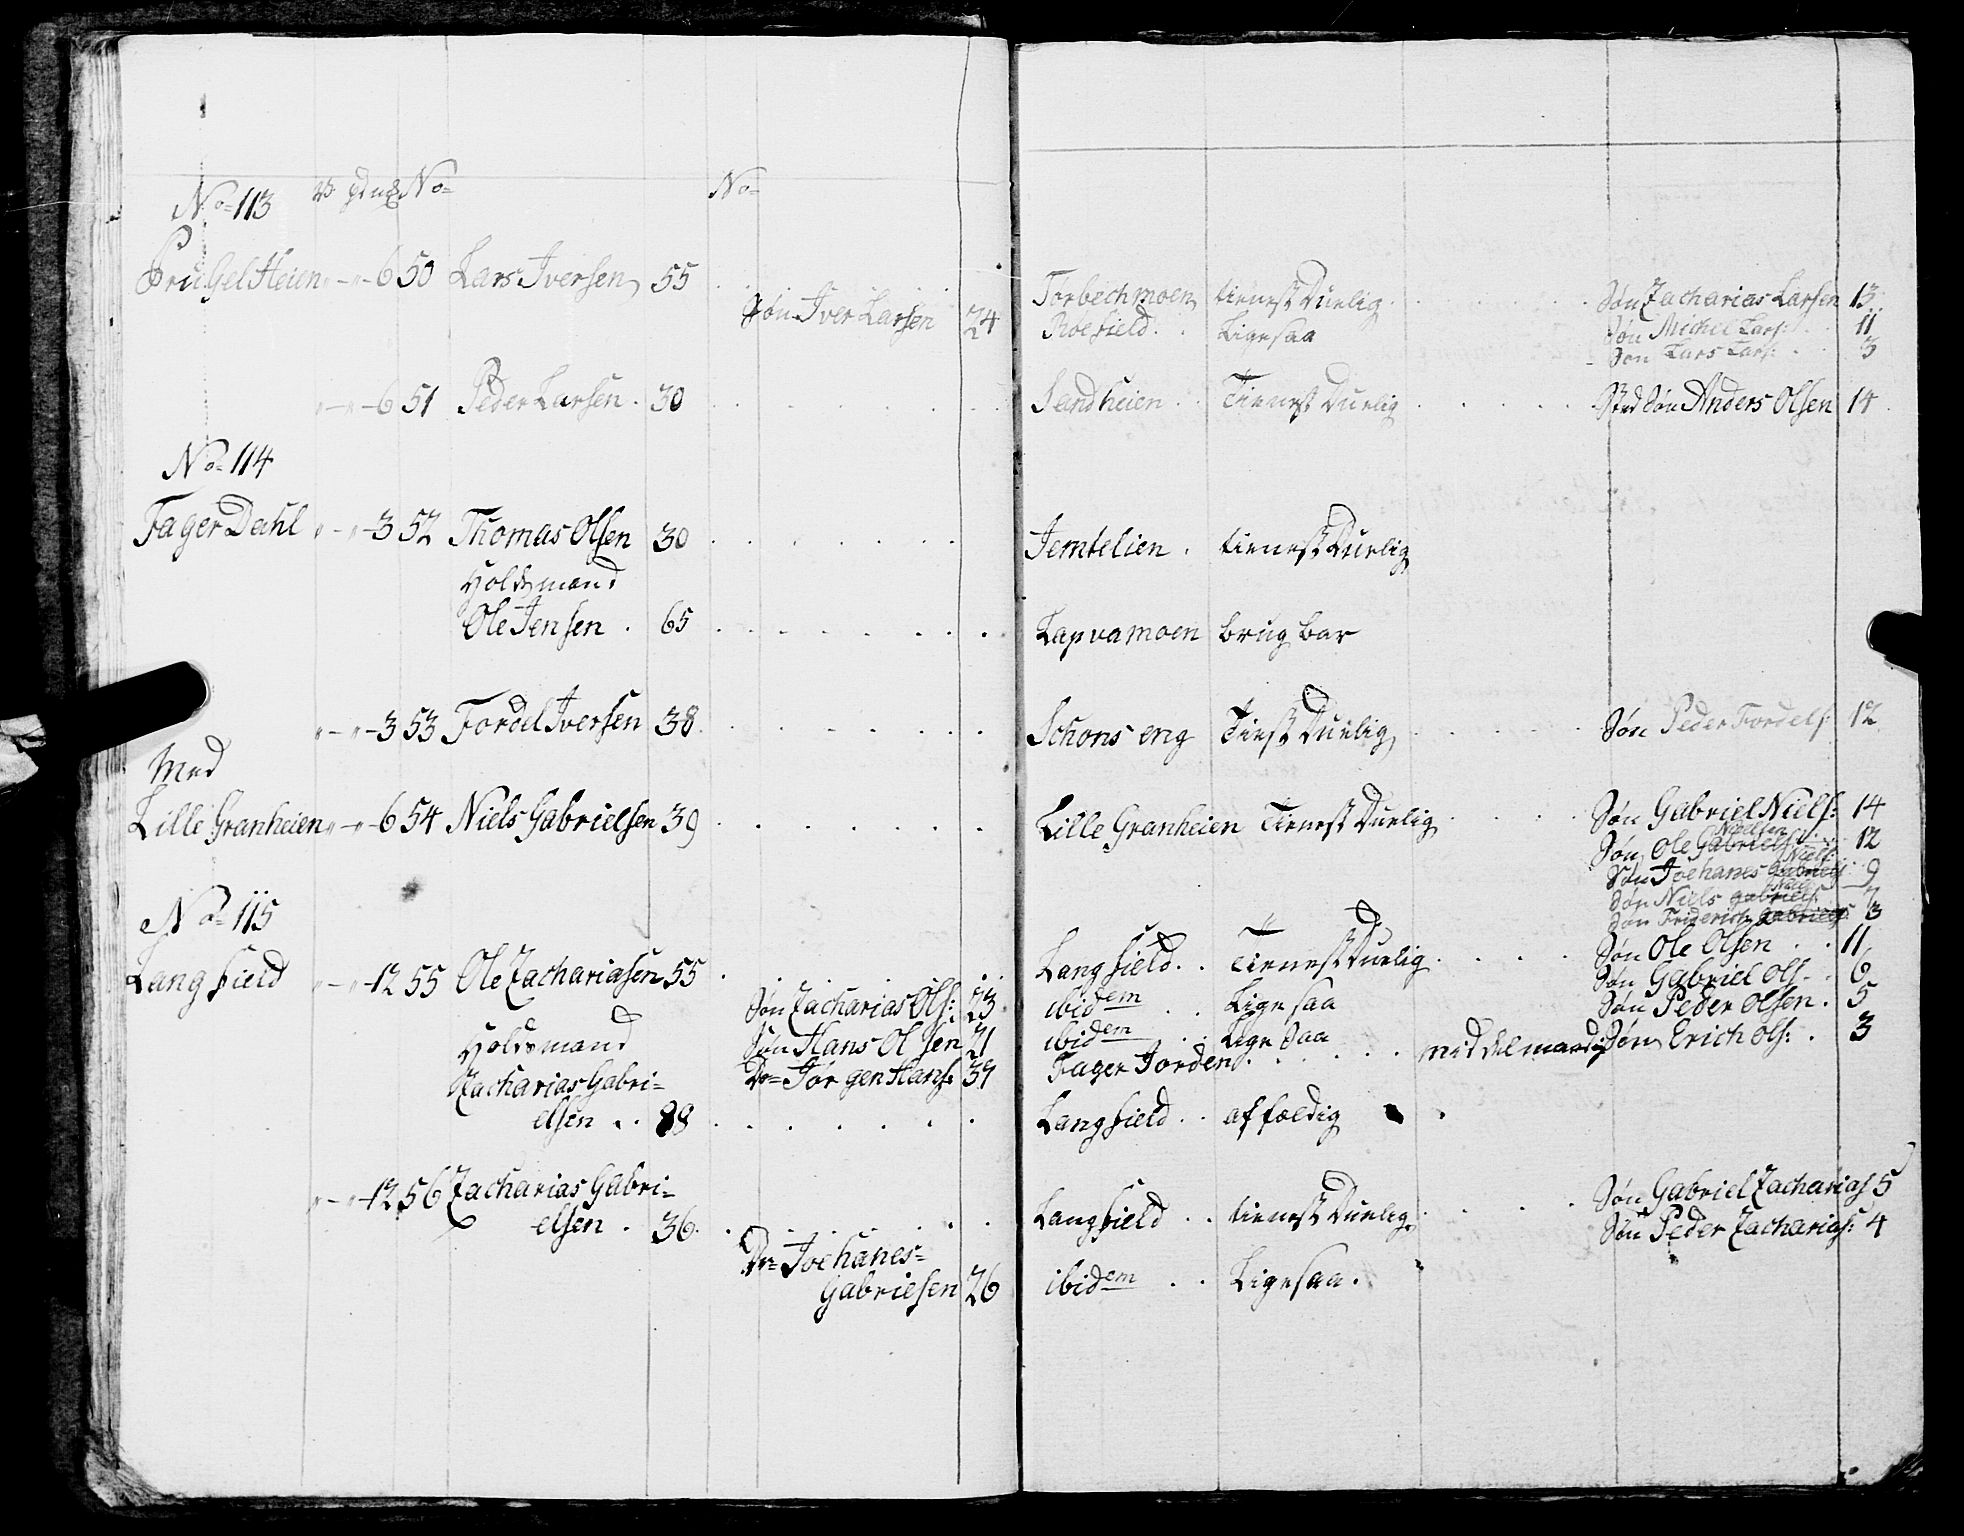 No 113 No No
PruGelHeien "-"-6 50 Lars Iversen 55 Torbechmoen tienest Duelig Søn Zacharias Larsen 13
Søn Iver Larsen 24 Roefield Ligesaa Søn Michel Lars: 11
Søn Lars Lars: 3
"-"-6 51 Peder Larsen 30 Sandheien Tienest Duelig Sted Søn Anders Olsen 14
No 114
Fager Dahl "-"-3 52 Thomas Olsen 30 Jemtelien tienest Duelig
Holdsmand
Ole Jensen 65 Lapvamoen brugbar
"-"-3 53 Fordel Iversen 38 Schons eng Tienst Duelig Søn Peder Fordels: 12
Med
Lille Granheien "-"-6 54 Niels Gabrielsen 39 Lille Granheien Tienest Duelig Søn Gabriel Niels: 14
Nielsen
Søn Ole Gabriels: 12
Niels:
Søn Joehanes Gabriels: 9
Niels
Søn Niels gabriels: 7
Søn Friderich gabriels: 3
No 115
Langfield "-"-12 55 Ole Zachariasen 55 Langfield Tienest Duelig Søn Ole Olsen 11
Søn Gabriel Ols 6
Søn Zacharias Ols: 23 ibidem Ligesaa Søn Peder Olsen 5
Holdsmand Søn Hans Olsen 21 ibidem Lige Saa Søn Erich Ols: 3
Zacharias Gabri= Do= Jørgen Hans: 39 Fager Jorden middelmaadig
elsen 89 Langfield affældig
"-"-12 56 Zacharias Gabri= Søn Gabriel Zacharias 5
elsen 36 Langfield tienest Duelig Søn Peder Zacharias: 4
Do= Joehanes=
Gabrielsen 26 ibidem Ligesaa